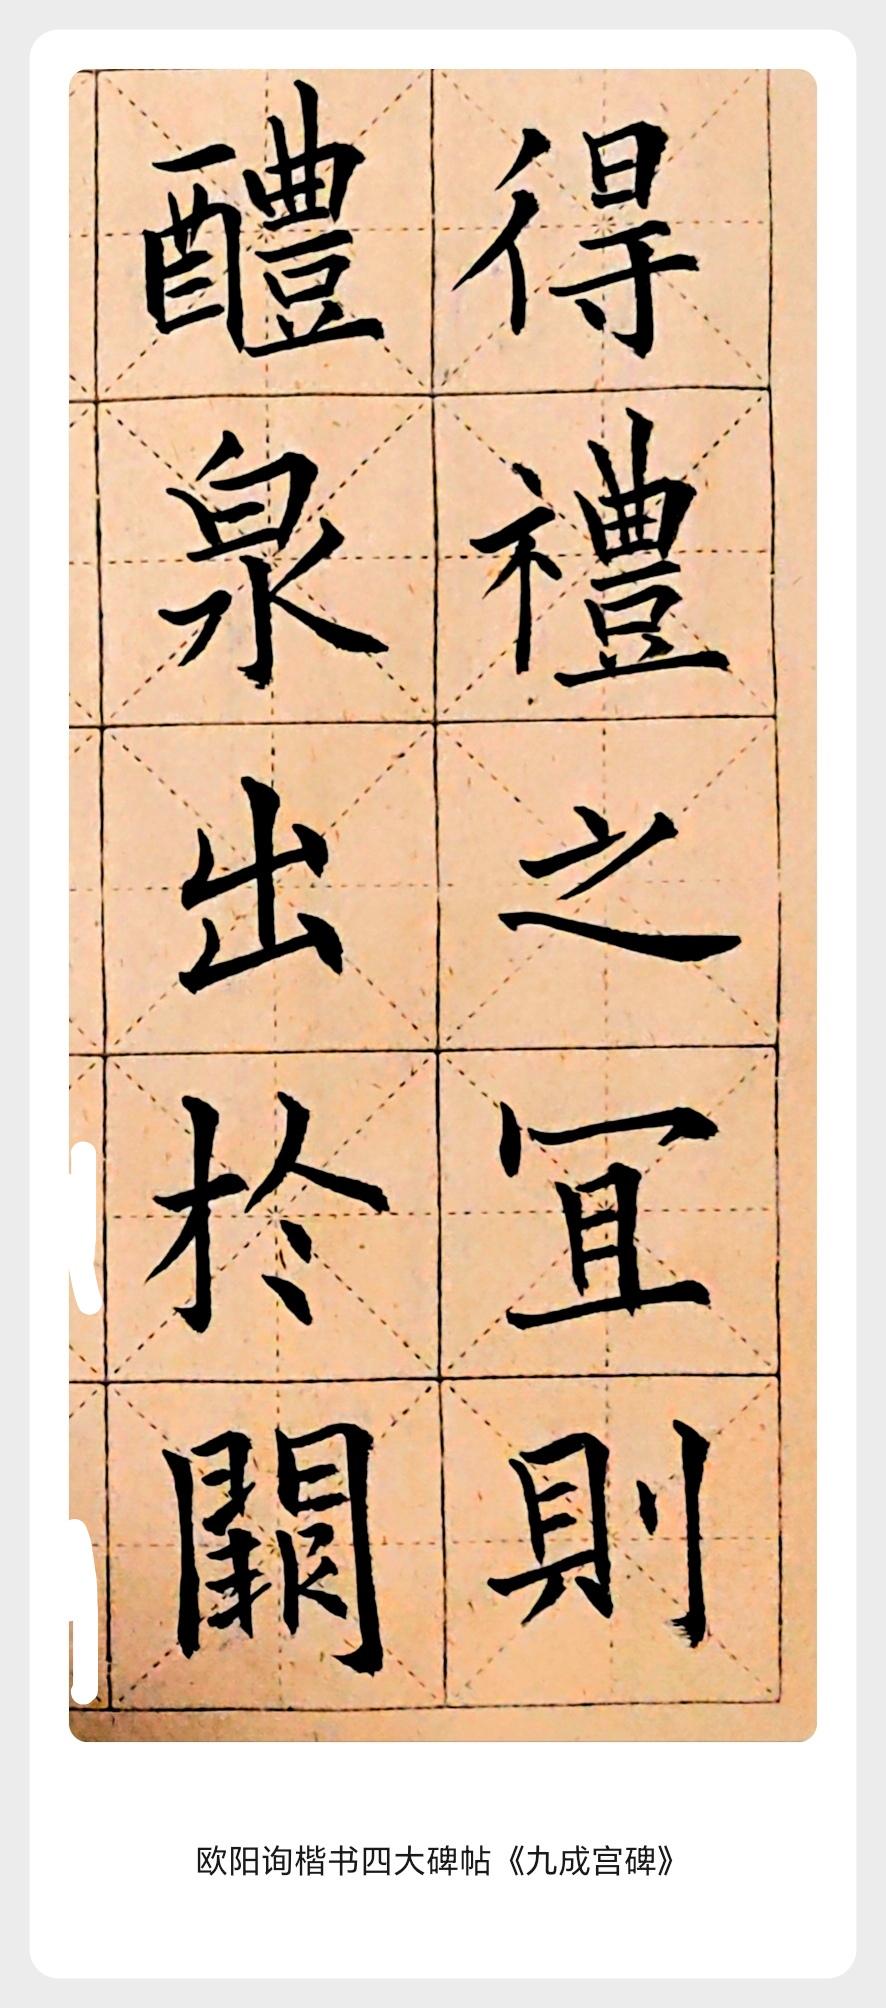 得禮之冝則
醴泉出於闕
欧阳询楷书四大碑帖《九成宫碑》